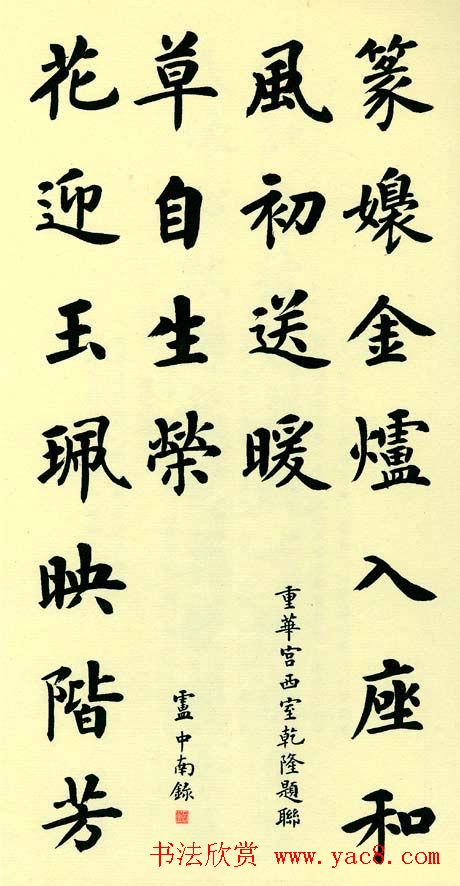 篆嬝金爐入座和
風初送暖
重華宮西室乾隆題聯
花迎玉珮映階芳
草自生榮
盧中南錄
书法欣赏 www.yac8.com